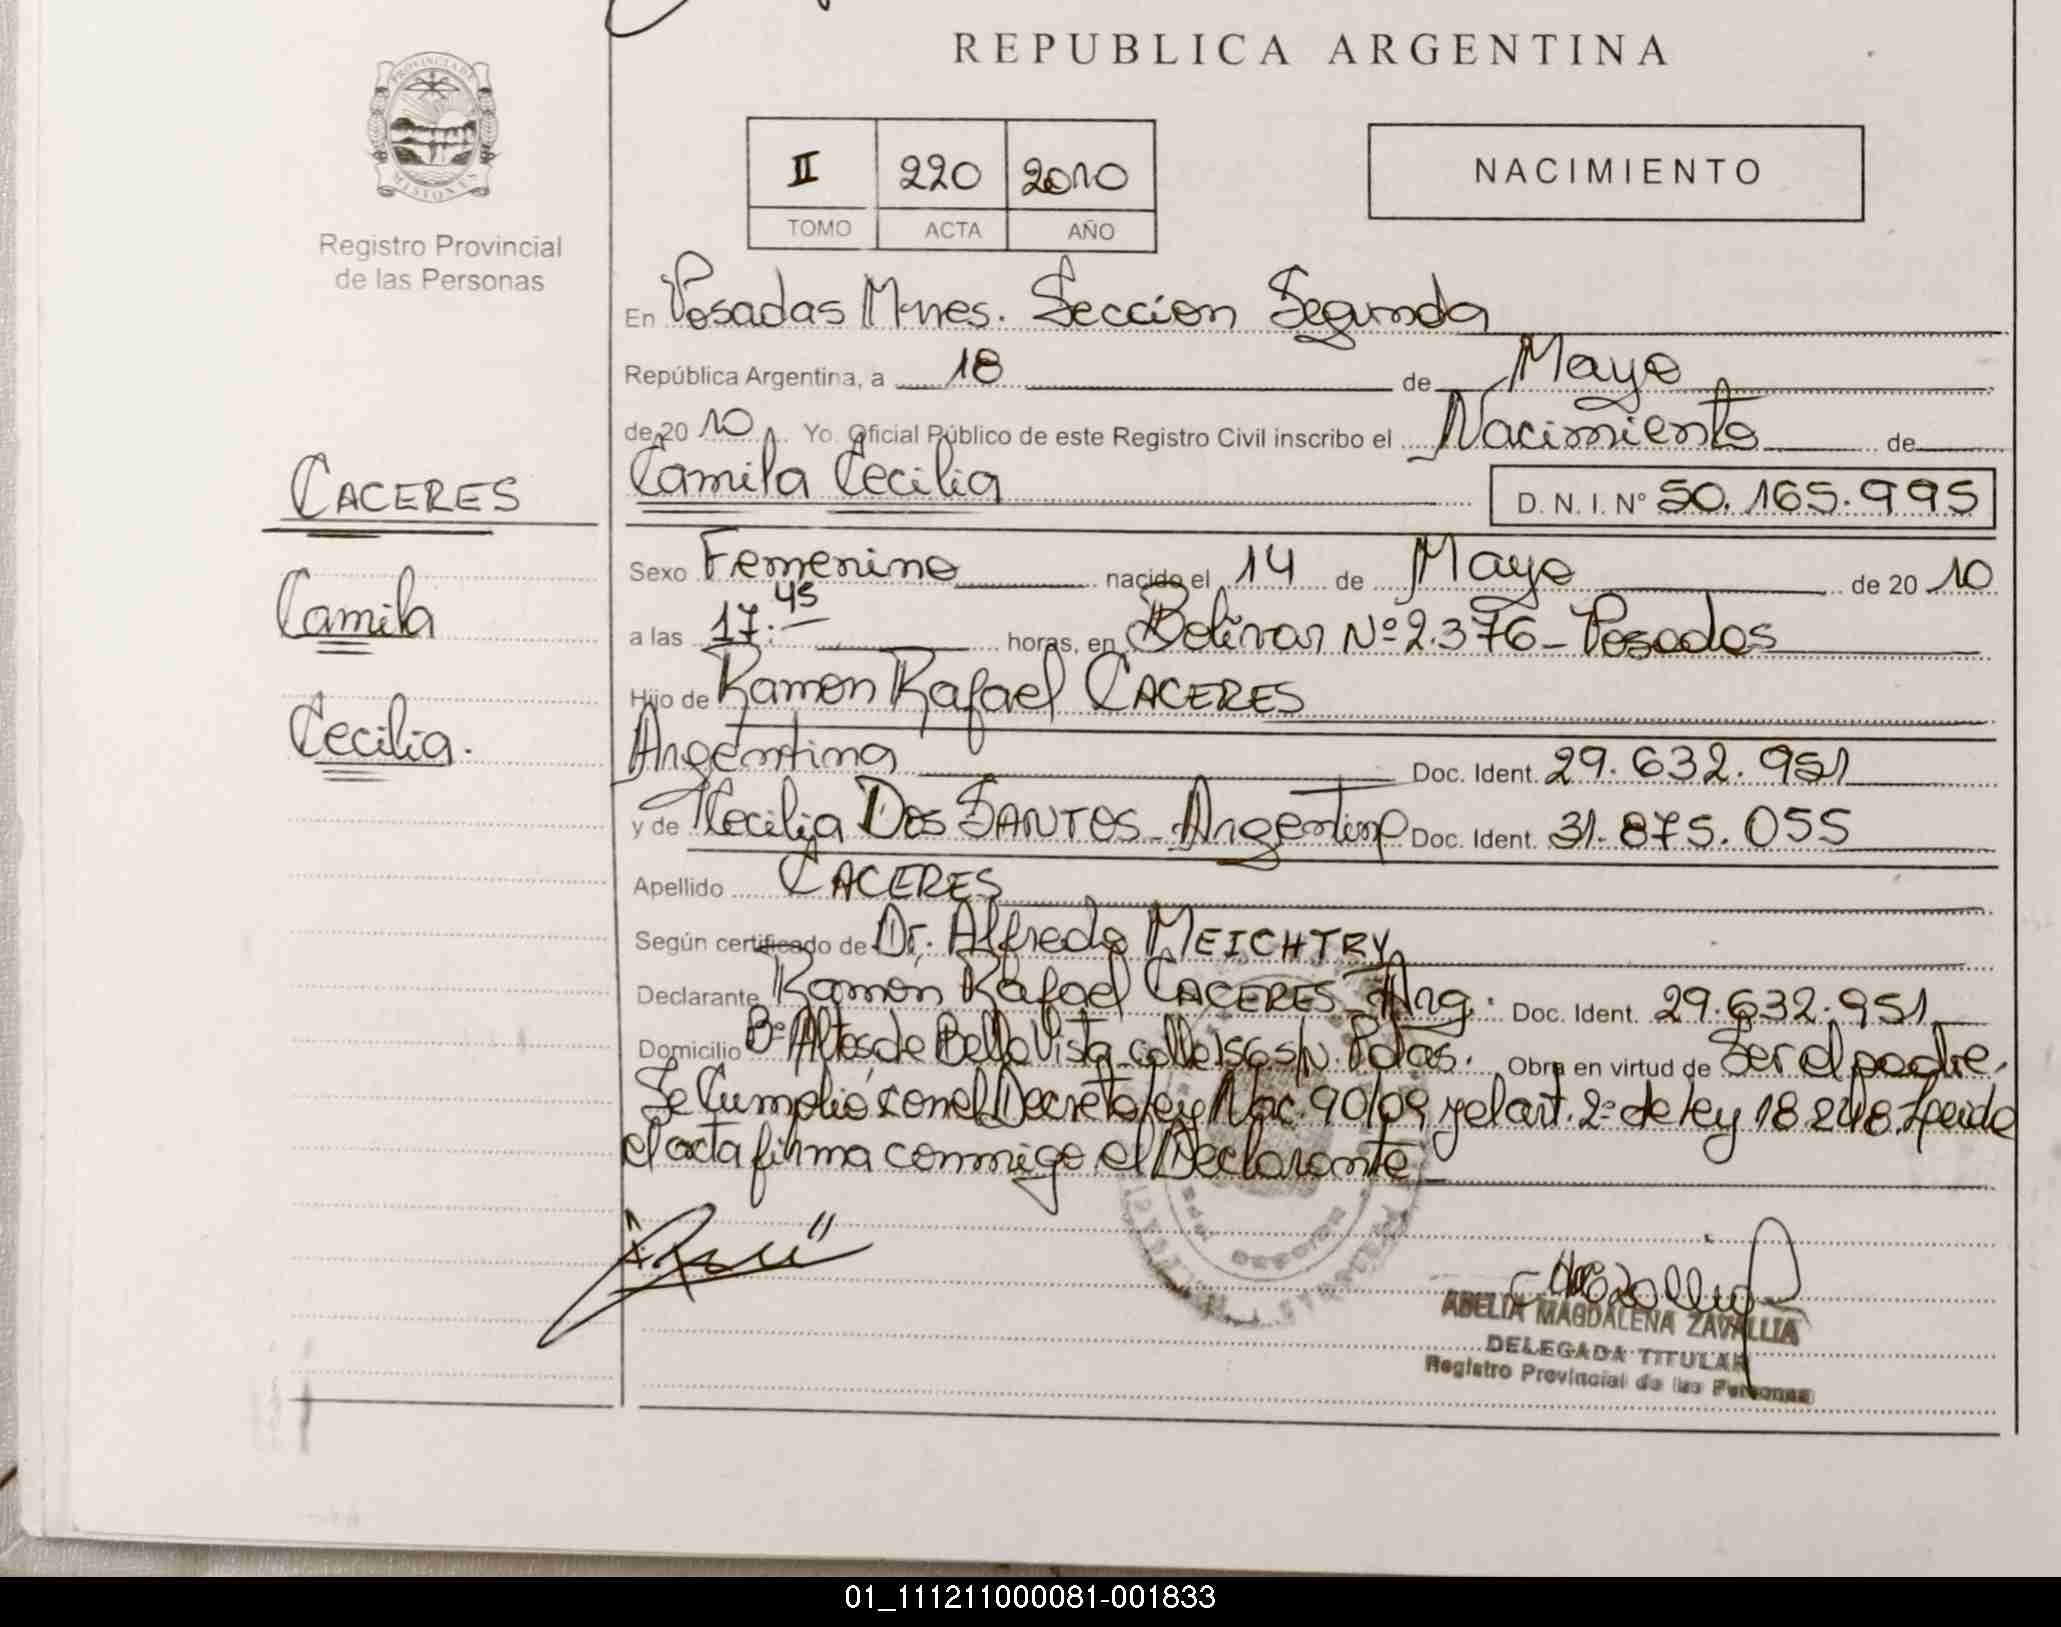 REPUBLICA ARGENTINA
PROVINCIA DE
MISIONES
Registro Provincial
de las Personas
II 220 2010
TOMO ACTA AÑO
NACIMIENTO
En Posadas Mnes. Sección Segunda
República Argentina, a 18 de Mayo
de 20 10 Yo Oficial Público de este Registro Civil inscribo el Nacimiento de
CACERES
Camila
Cecilia.
Camila Cecilia D. N. I. Nº 50.165.995
Sexo Femenino nacido el 14 de Mayo de 20 10
a las 17:45 horas, en Bolívar Nº 2.376 - Posadas
Hijo de Ramon Rafael CACERES
Argentina Doc. Ident. 29.632.951
y de Cecilia DOS SANTOS - Argentina Doc. Ident. 31.875.055
Apellido CACERES
Según certificado de Dr. Alfredo MEICHTRY
Declarante Ramon Rafael CACERES - Arg. Doc. Ident. 29.632.951
Domicilio Bº Altos de Bella Vista calle 156 s/n. Pdas. Obra en virtud de Ser el padre.
Se Cumplió con el Decreto Ley Nac. 90/09 y el art. 2º de Ley 18.248. Leida
el acta firma conmigo el Declarante
ADELIA MAGDALENA ZAVALLIA
DELEGADA TITULAR
Registro Provincial de las Personas
01_111211000081-001833